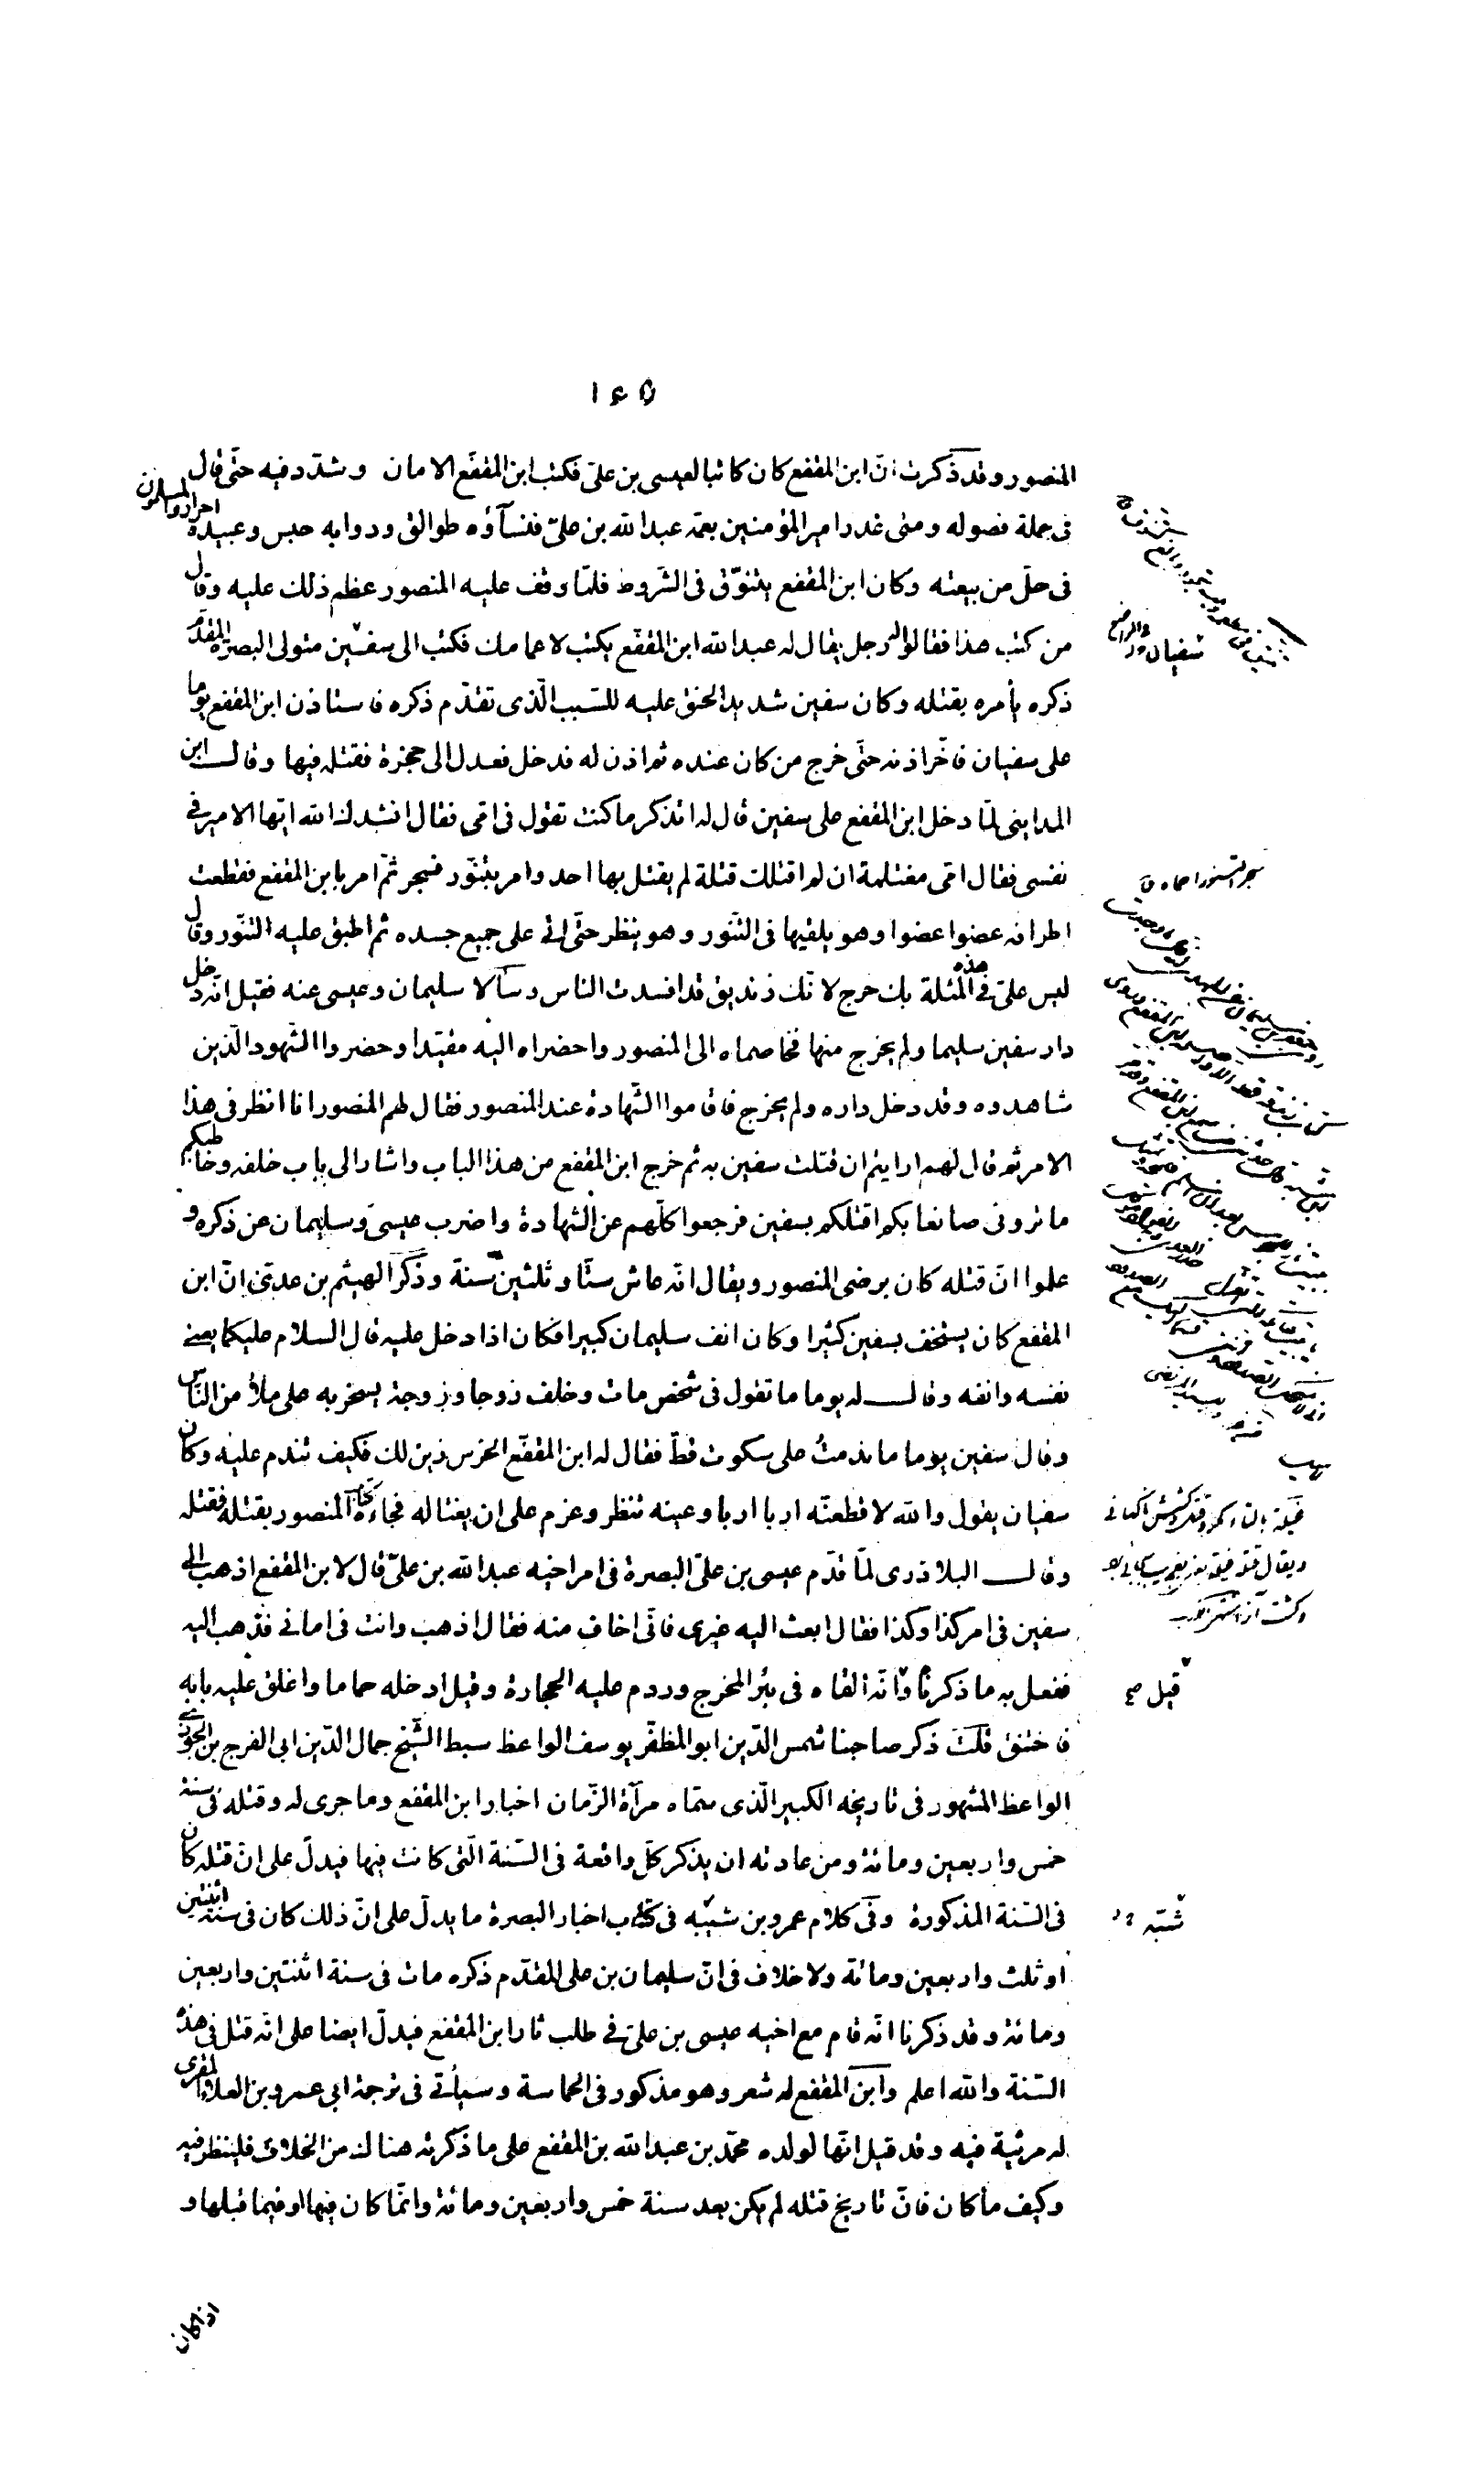 ١٤٥
المنصور وقد ذكرت انّ ابن المقفع كان كاتبا لعيسى بن علىّ فكتب ابن المقفّع الامان وشدّد فيه حتّى قال
فى جملة فصوله ومتى غدر امير المؤمنين بعمّه عبدالله بن علىّ فنسآؤه طوالق ودوابه حبس وعبيده احرار والمسلمون
فى حلّ من بيعته وكان ابن المقفع يتنوّق فى الشّروط فلمّا وقف عليه المنصور عظم ذلك عليه وقال
من كتب هذا فقالوا له رجل يقال له عبدالله ابن المقفّع يكتب لاعمامك فكتب الى سفين متولى البصره المقدّم
ذكره يأمره بقتله وكان سفين شديد الحنق عليه للسّبب الّذى تقدّم ذكره فاستاذن ابن المقفع يوما
على سفيان فاخّر اذنه حتّى خرج من كان عنده ثم اذن له فدخل فعدل الى حجرة فقتله فيها وقال ابن
المداينى لمّا دخل ابن المقفع على سفين قال له اتذكر ما كنت تقول فى امّى فقال انشدك الله ايّها الامير فى
نفسى فقال امّى مغتلمة ان لم اقتلك قتلة لم يقتل بها احد وامر بتنّور فسجر ثمّ امر بابن المقفع فقطعت
اطرافه عضوا عضوا وهو يلقيها فى التنّور وهو ينظر حتّى اتى على جميع جسده ثم اطبق عليه التنّور وقال
ليس علىّ فى هذه المثلة بك حرج لانّك زنديق قد افسدت الناس وسألا سليمان وعيسى عنه فقيل انّه دخل
دار سفين سليما ولم يخرج منها فخاصماه الى المنصور واحضراه اليه مقيّدا وحضروا الشّهود الّذين
شاهدوه وقد دخل داره ولم يخرج فاقاموا الشّهادة عند المنصور فقال لهم المنصور انا انظر فى هذا
الامر ثم قال لهم ارايتم ان قتلت سفين به ثم خرج ابن المقفع من هذا الباب واشار الى باب خلفه وخاطبكم
ما ترونى صانعا بكم اقتلكم بسفين فرجعوا كلّهم عن الشهادة واضرب عيسى وسليمان عن ذكره و
علموا انّ قتله كان برضى المنصور ويقال انّه عاش ستّا وثلثين سنة وذكر الهيثم بن عدىّ انّ ابن
المقفع كان يستخف بسفين كثيرا وكان انف سليمان كبيرا فكان اذا دخل عليه قال السلام عليكما يعنى
نفسه وانفه وقال له يوما ما تقول فى شخص مات وخلف زوجا وزوجة يسخر به على ملأ من النّاس
وقال سفين يوما ما ندمتُ على سكوت قطّ فقال له ابن المقفّع الخرس زين لك فكيف تندم عليه وكان
سفيان يقول والله لاقطعنّه اربا اربا وعينه تنظر وعزم على ان يغتاله فجاءه كتاب المنصور بقتله فقتله
وقال البلاذرى لمّا قدّم عيسى بن علىّ البصرة فى امر اخيه عبدالله بن علىّ قال لابن المقفع اذهب الى
سفين فى امر كذا وكذا فقال ابعث اليه غيرى فانّى اخاف منه فقال اذهب وانت فى امانى فذهب اليه
ففعل به ما ذكرنا وانّه القاه فى بئر المخرج وردم عليه الحجارة وقيل ادخله حماما واغلق عليه بابه
فاختنق قلت ذكر صاحبنا شمس الدّين ابو المظفّر يوسف الواعظ سبط الشّيخ جمال الدّين ابى الفرج بن الجوزى
الواعظ المشهور فى تاريخه الكبير الّذى سمّاه مرآة الزّمان اخبار ابن المقفع وما جرى له وقتله فى سنة
خمس واربعين ومائة ومن عادته ان يذكر كلّ واقعة فى السّنة الّتى كانت فيها فيدلّ على انّ قتله كان
فى السّنة المذكورة وفى كلام عمرو بن شيبه فى كتاب اخبار البصرة ما يدلّ على انّ ذلك كان فى سنة اثنتين
او ثلث واربعين ومائة ولا خلاف فى انّ سليمان بن على المقدّم ذكره مات فى سنة اثنتين واربعين
ومائة وقد ذكرنا انّه قام مع اخيه عيسى بن علىّ فى طلب ثار ابن المقفع فيدلّ ايضا على انّه قتل فى هذه
السّنة والله اعلم وابن المقفع له شعر وهو مذكور فى الحماسة وسيأتى فى ترجمة ابى عمرو بن العلاء المقرى
له مرثية فيه وقد قيل انّها لولده محمّد بن عبدالله بن المقفع على ما ذكرته هنالك من الخلاف فلينظر فيه
وكيف ما كان فانّ تاريخ قتله لم يكن بعد سنة خمس واربعين ومائة وانّما كان فيها او فيما قبلها و
اذا كان
سفيان
سجر التنور احماه ق
قيل
شبّه